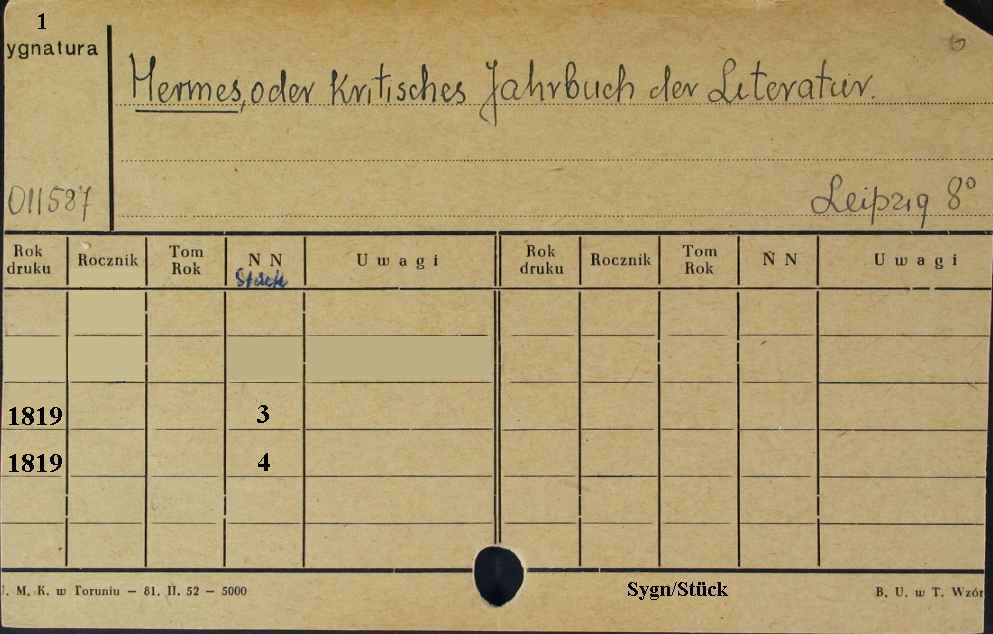 1
ygnatura
6
Hermes, oder Kritisches Jahrbuch der Literatur.
011587
Leipzig 8°
Rok druku Rocznik Tom Rok N N Stück U w a g i Rok druku Rocznik Tom Rok N N U w a g i
1819 3
1819 4
. M. K. w Toruniu – 81. II. 52 – 5000 Sygn/Stück B. U. w T. Wzór